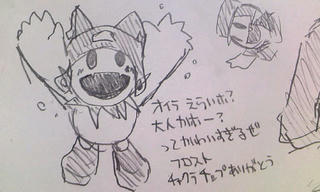 オイラ えらいホ?
大人かホー?
ってかわいすぎるぜ
フロスト
チャクラチップありがとう